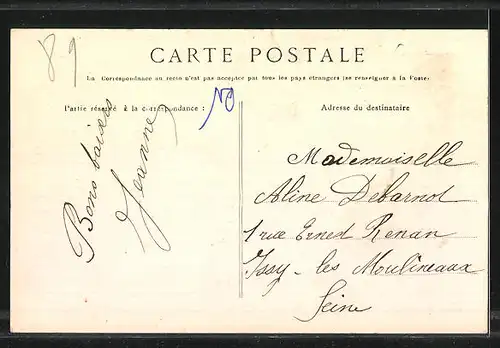 89
CARTE POSTALE
La Correspondance au recto n'est pas acceptée par tous les pays étrangers (se renseigner à la Poste)
Partie réservée à la correspondance :
Adresse du destinataire
Bons baisers
Jeanne
Mademoiselle
Aline Debarnot
1 rue Ernest Renan
Issy-les Moulineaux
Seine